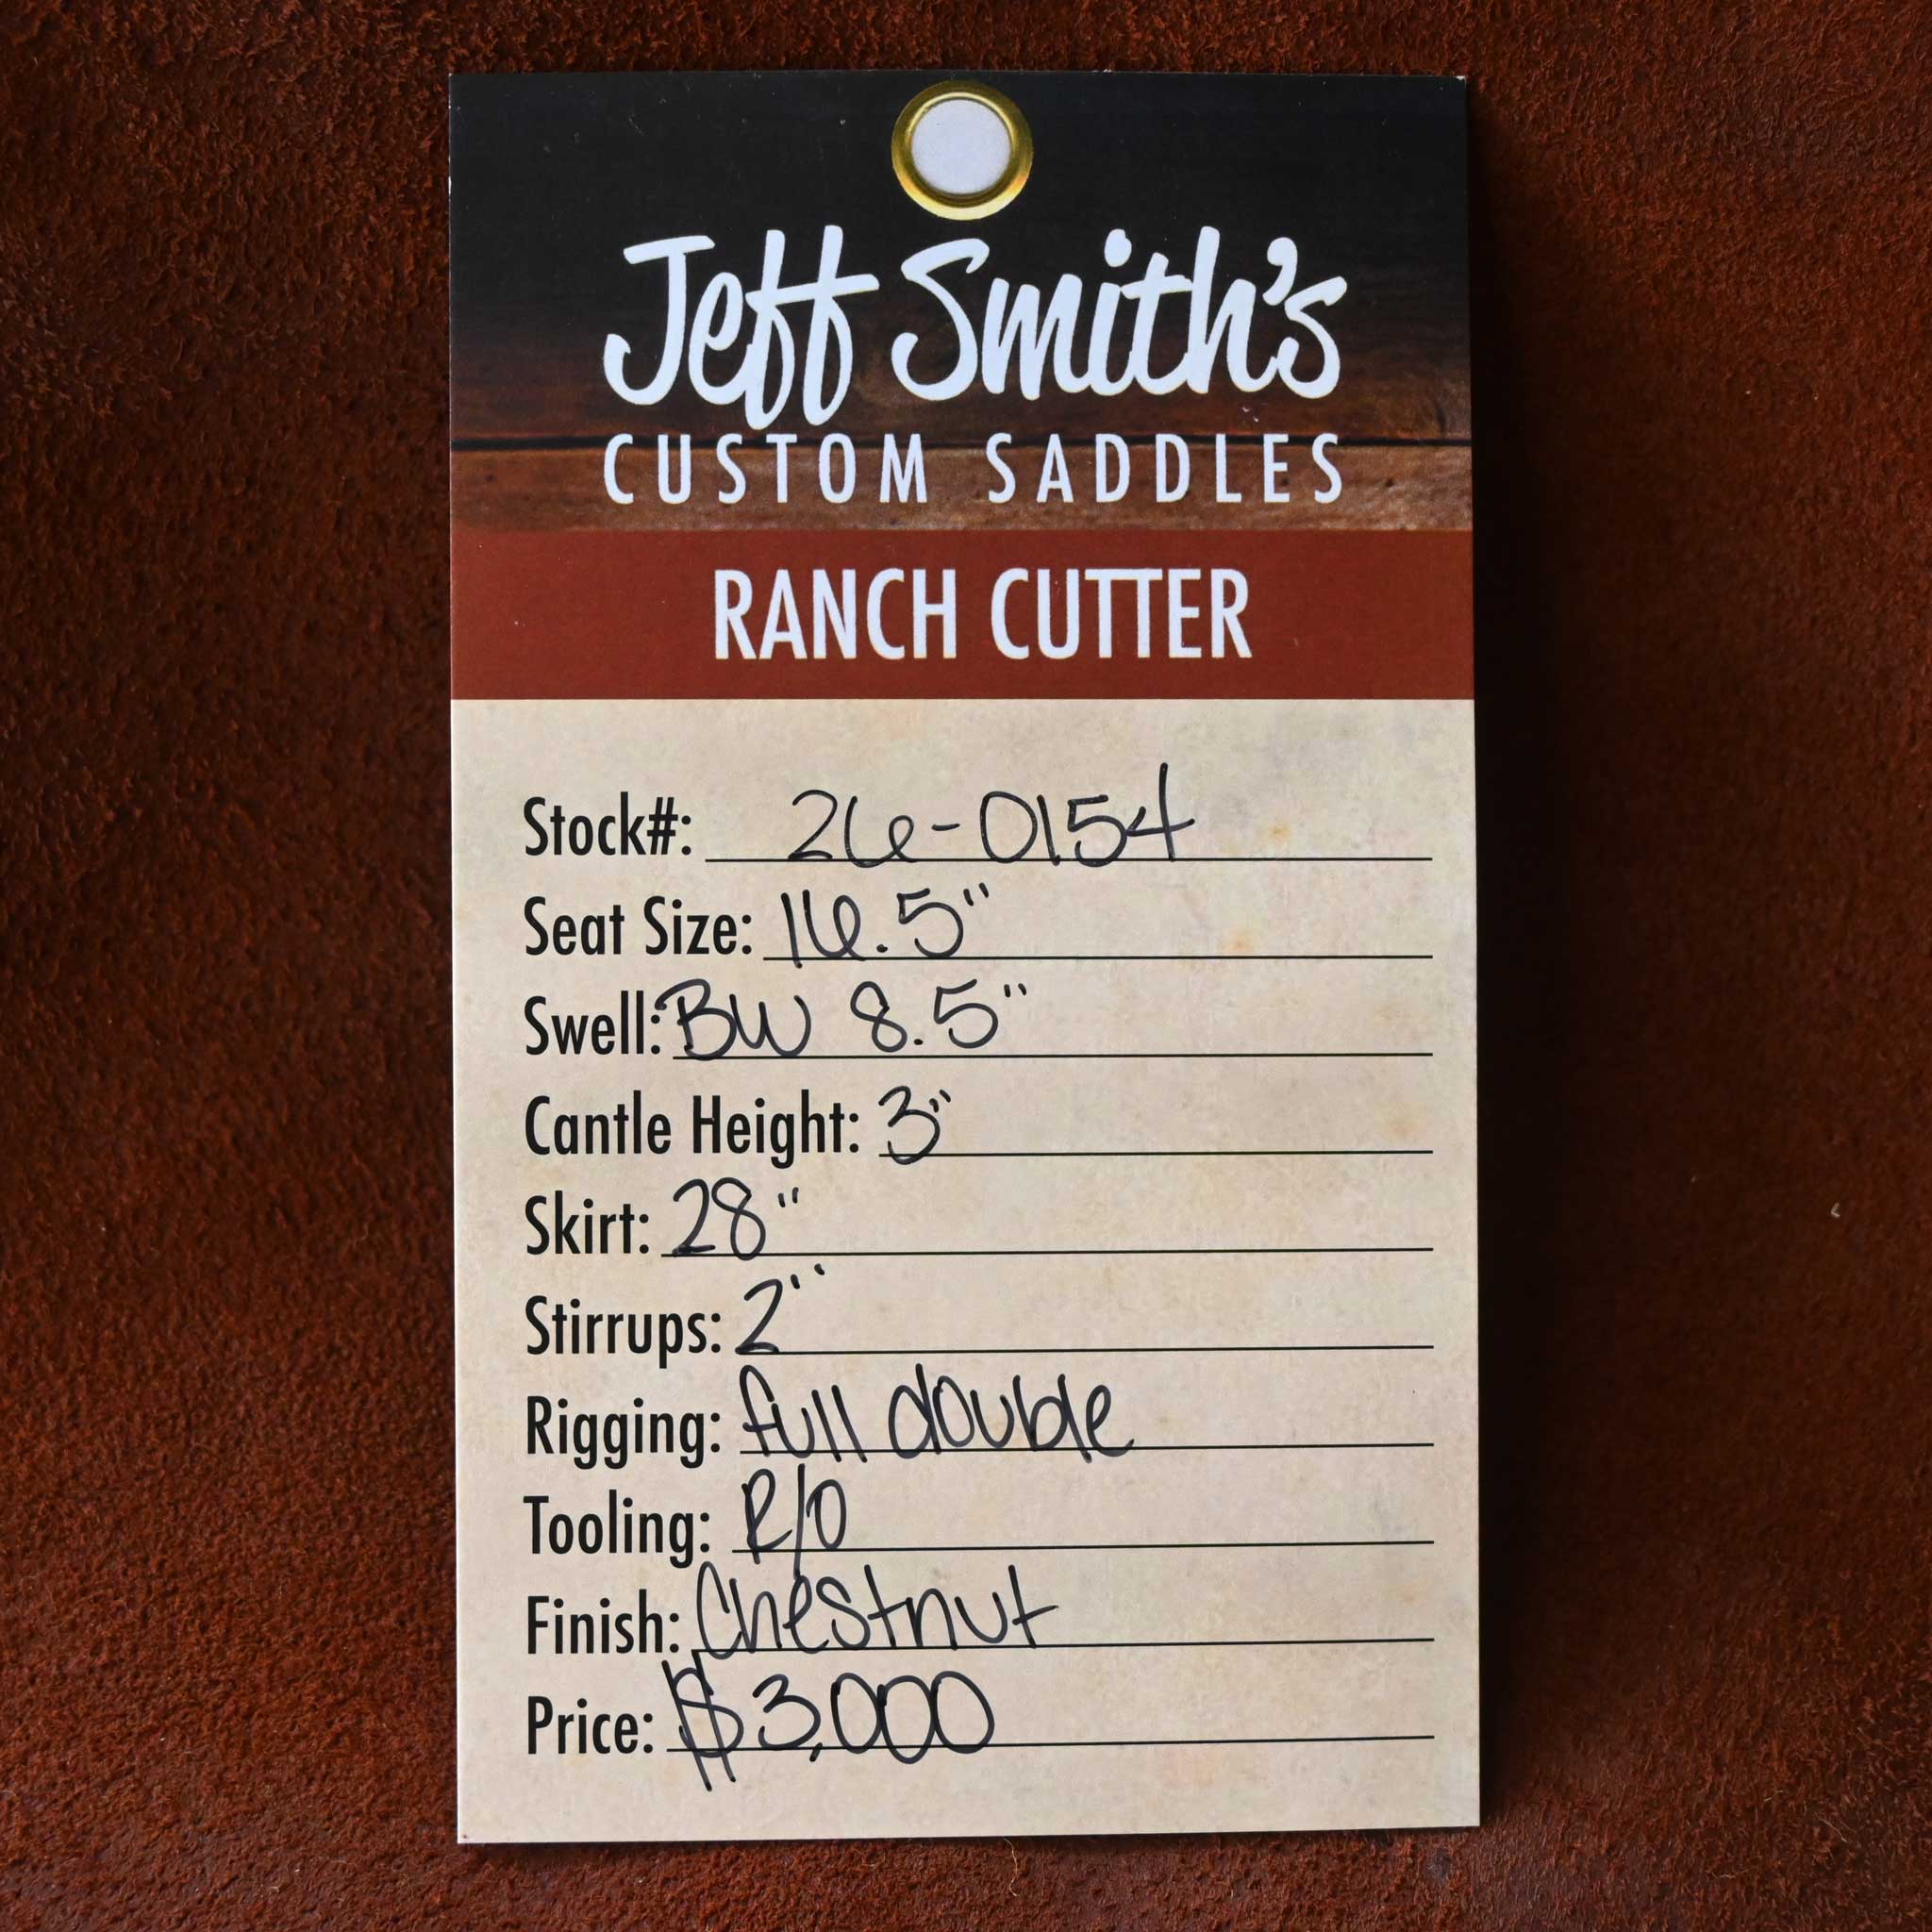 Jeff Smith's
CUSTOM SADDLES
RANCH CUTTER
Stock#: 26-0154
Seat Size: 16.5"
Swell: BW 8.5"
Cantle Height: 3"
Skirt: 28"
Stirrups: 2"
Rigging: full double
Tooling: R/O
Finish: Chestnut
Price: $3,000